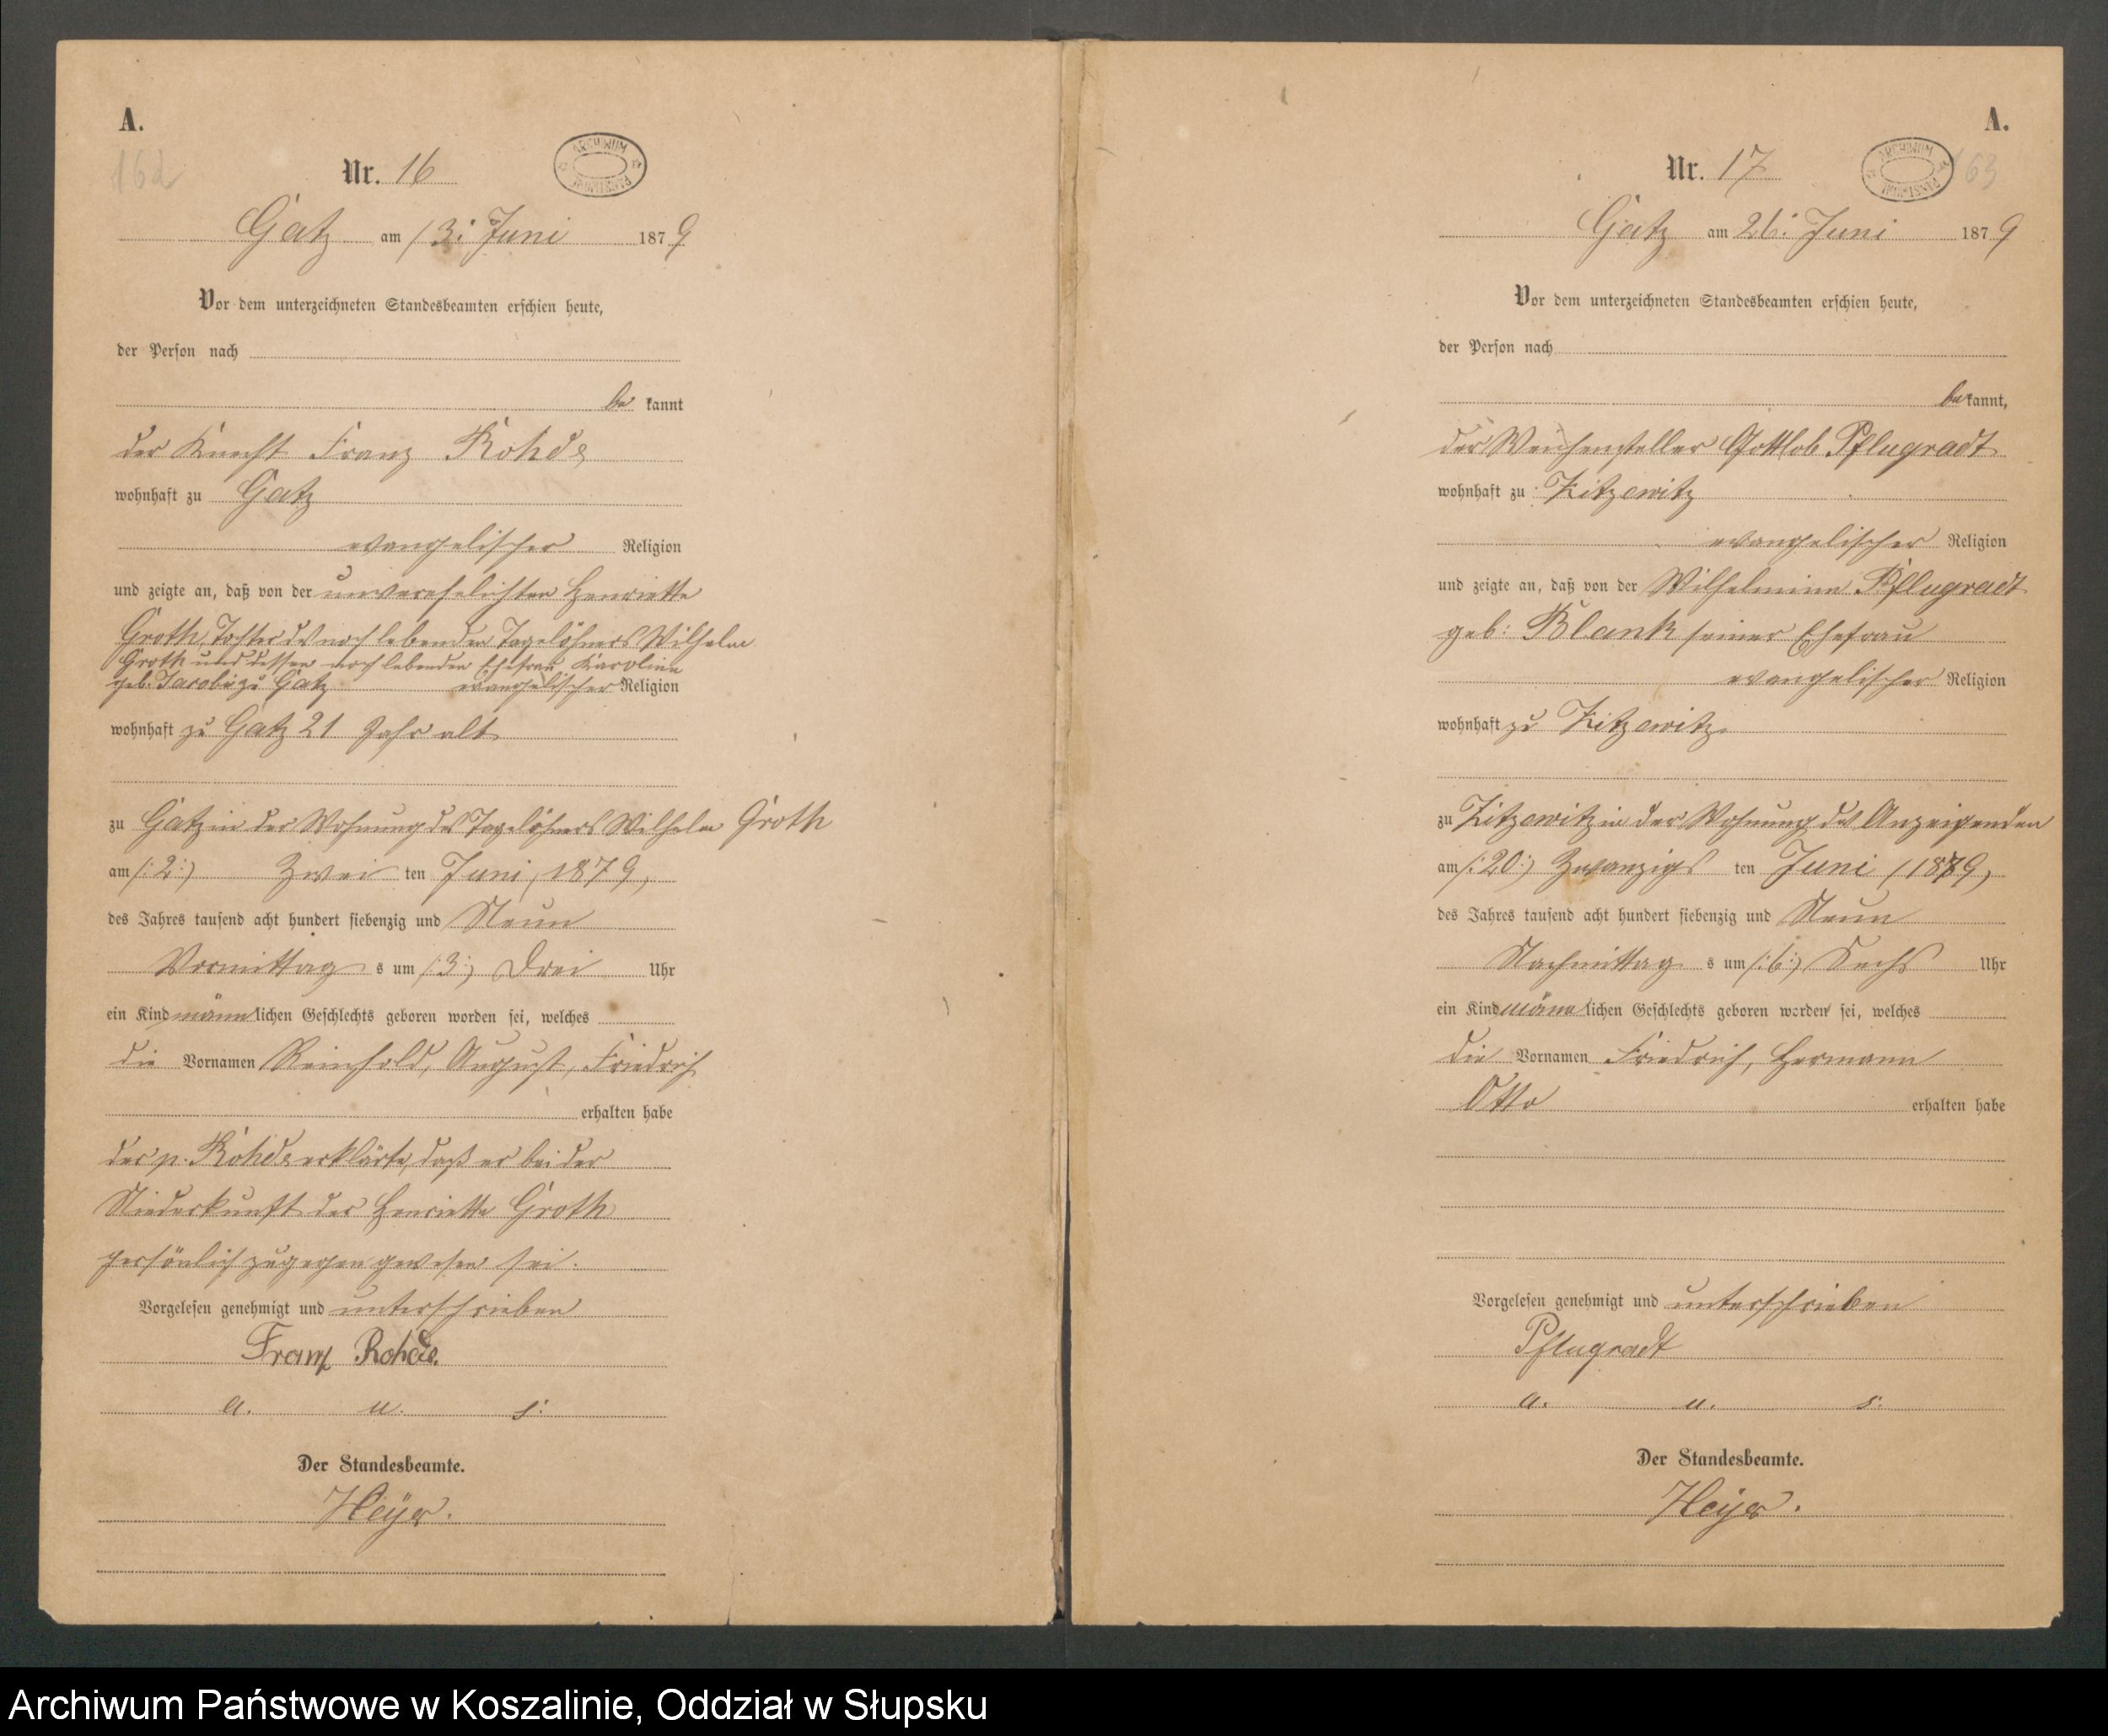 A.
162
Nr. 16
ARCHIWUM PAŃSTWOWE
Gatz am 13. Juni 1879
Vor dem unterzeichneten Standesbeamten erschien heute,
der Person nach
be kannt
der Knecht Franz Rohde
wohnhaft zu Gatz
evangelischer Religion
und zeigte an, daß von der unverehelichten Henriette
Groth, Tochter des noch lebenden Tagelöhners Wilhelm
Groth und dessen noch lebenden Ehefrau Karoline
geb. Jacobi zu Gatz evangelischer Religion
wohnhaft zu Gatz 21 Jahr alt
zu Gatz in der Wohnung des Tagelöhners Wilhelm Groth
am /:2:/ Zwei ten Juni, 1879,
des Jahres tausend acht hundert siebenzig und Neun
Vormittag s um /:3:/ Drei Uhr
ein Kind männlichen Geschlechts geboren worden sei, welches
die Vornamen Reinhold, August, Friedrich
erhalten habe
der p. Rohde erklärte, daß er bei der
Niederkunft der Henriette Groth
persönlich zugegen gewesen sei.
Vorgelesen genehmigt und unterschrieben
Franz Rohde.
a. u. s.
Der Standesbeamte.
Heyer.
A.
163
Nr. 17
ARCHIWUM PAŃSTWOWE
Gatz am 26. Juni 1879
Vor dem unterzeichneten Standesbeamten erschien heute,
der Person nach
be kannt,
der Weichensteller Gottlob Pflugradt
wohnhaft zu Zitzewitz
evangelischer Religion
und zeigte an, daß von der Wilhelmine Pflugradt
geb: Blank seiner Ehefrau
evangelischer Religion
wohnhaft zu Zitzewitz
zu Zitzewitz in der Wohnung des Anzeigenden
am /:20:/ Zwanzigs ten Juni (1879)
des Jahres tausend acht hundert siebenzig und Neun
Nachmittag s um /:6:/ Sechs Uhr
ein Kind männlichen Geschlechts geboren worden sei, welches
die Vornamen Friedrich, Hermann
Otto erhalten habe
Vorgelesen genehmigt und unterschrieben
Pflugradt
a. u. s.
Der Standesbeamte.
Heyer.
Archiwum Państwowe w Koszalinie, Oddział w Słupsku